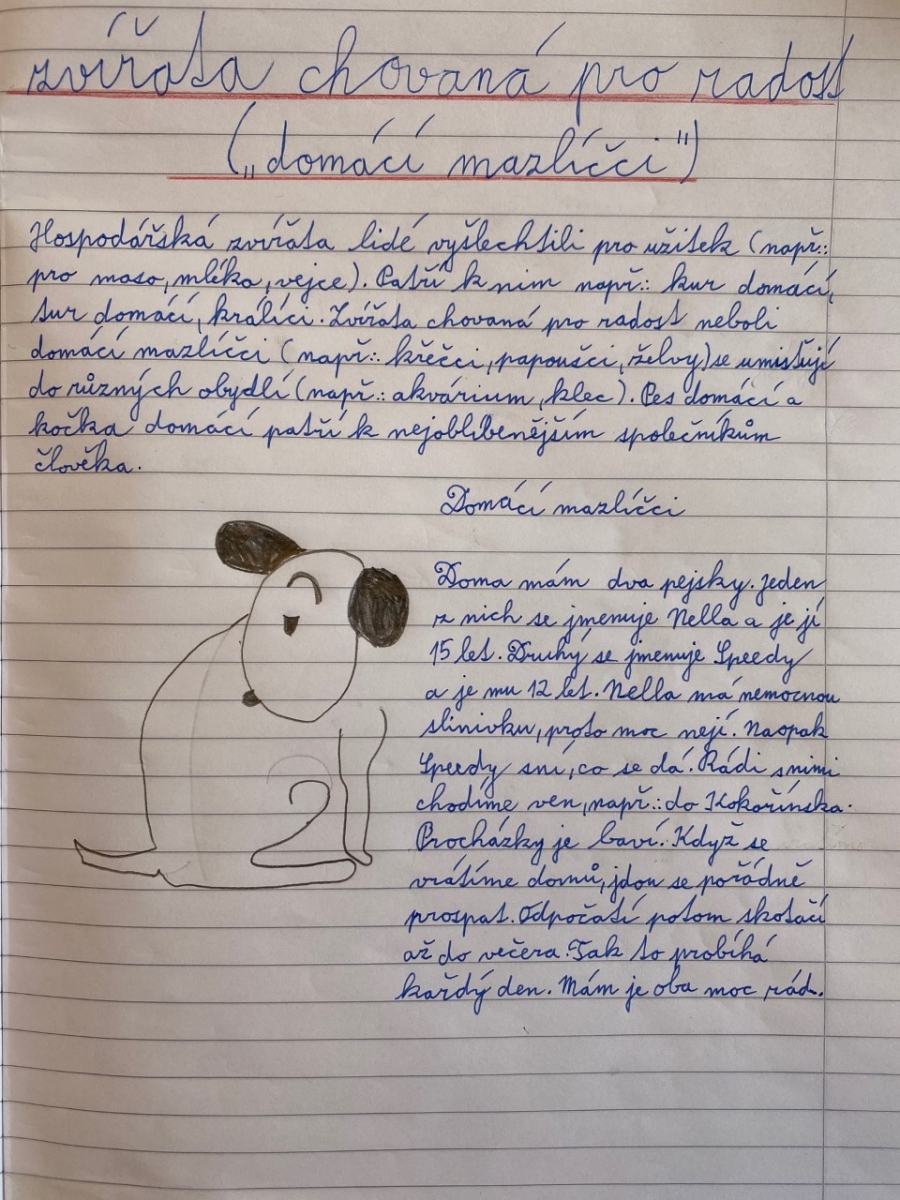 zvířata chovaná pro radost
(„domácí mazlíčci")
Hospodářská zvířata lidé vyšlechtili pro užitek (např.:
pro maso, mléka, vejce). Patří k nim např.: kur domácí,
tur domácí, králíci. Zvířata chovaná pro radost neboli
domácí mazlíčci (např.: křečci, papoušci, želvy) se umisťují
do různých obydlí (např.: akvárium, klec). Pes domácí a
kočka domácí patří k nejoblíbenějším společníkům
člověka.
Domácí mazlíčci
Doma mám dva pejsky. Jeden
z nich se jmenuje Nella a je jí
15 let. Druhý se jmenuje Speedy
a je mu 12 let. Nella má nemocnou
slinivku, proto moc nejí. Naopak
Speedy sní, co se dá. Rádi s nimi
chodíme ven, např.: do Kokořínska.
Procházky je baví. Když se
vrátíme domů, jdou se pořádně
prospat. Odpočatí potom skotačí
až do večera. Tak to probíhá
každý den. Mám je oba moc rád.